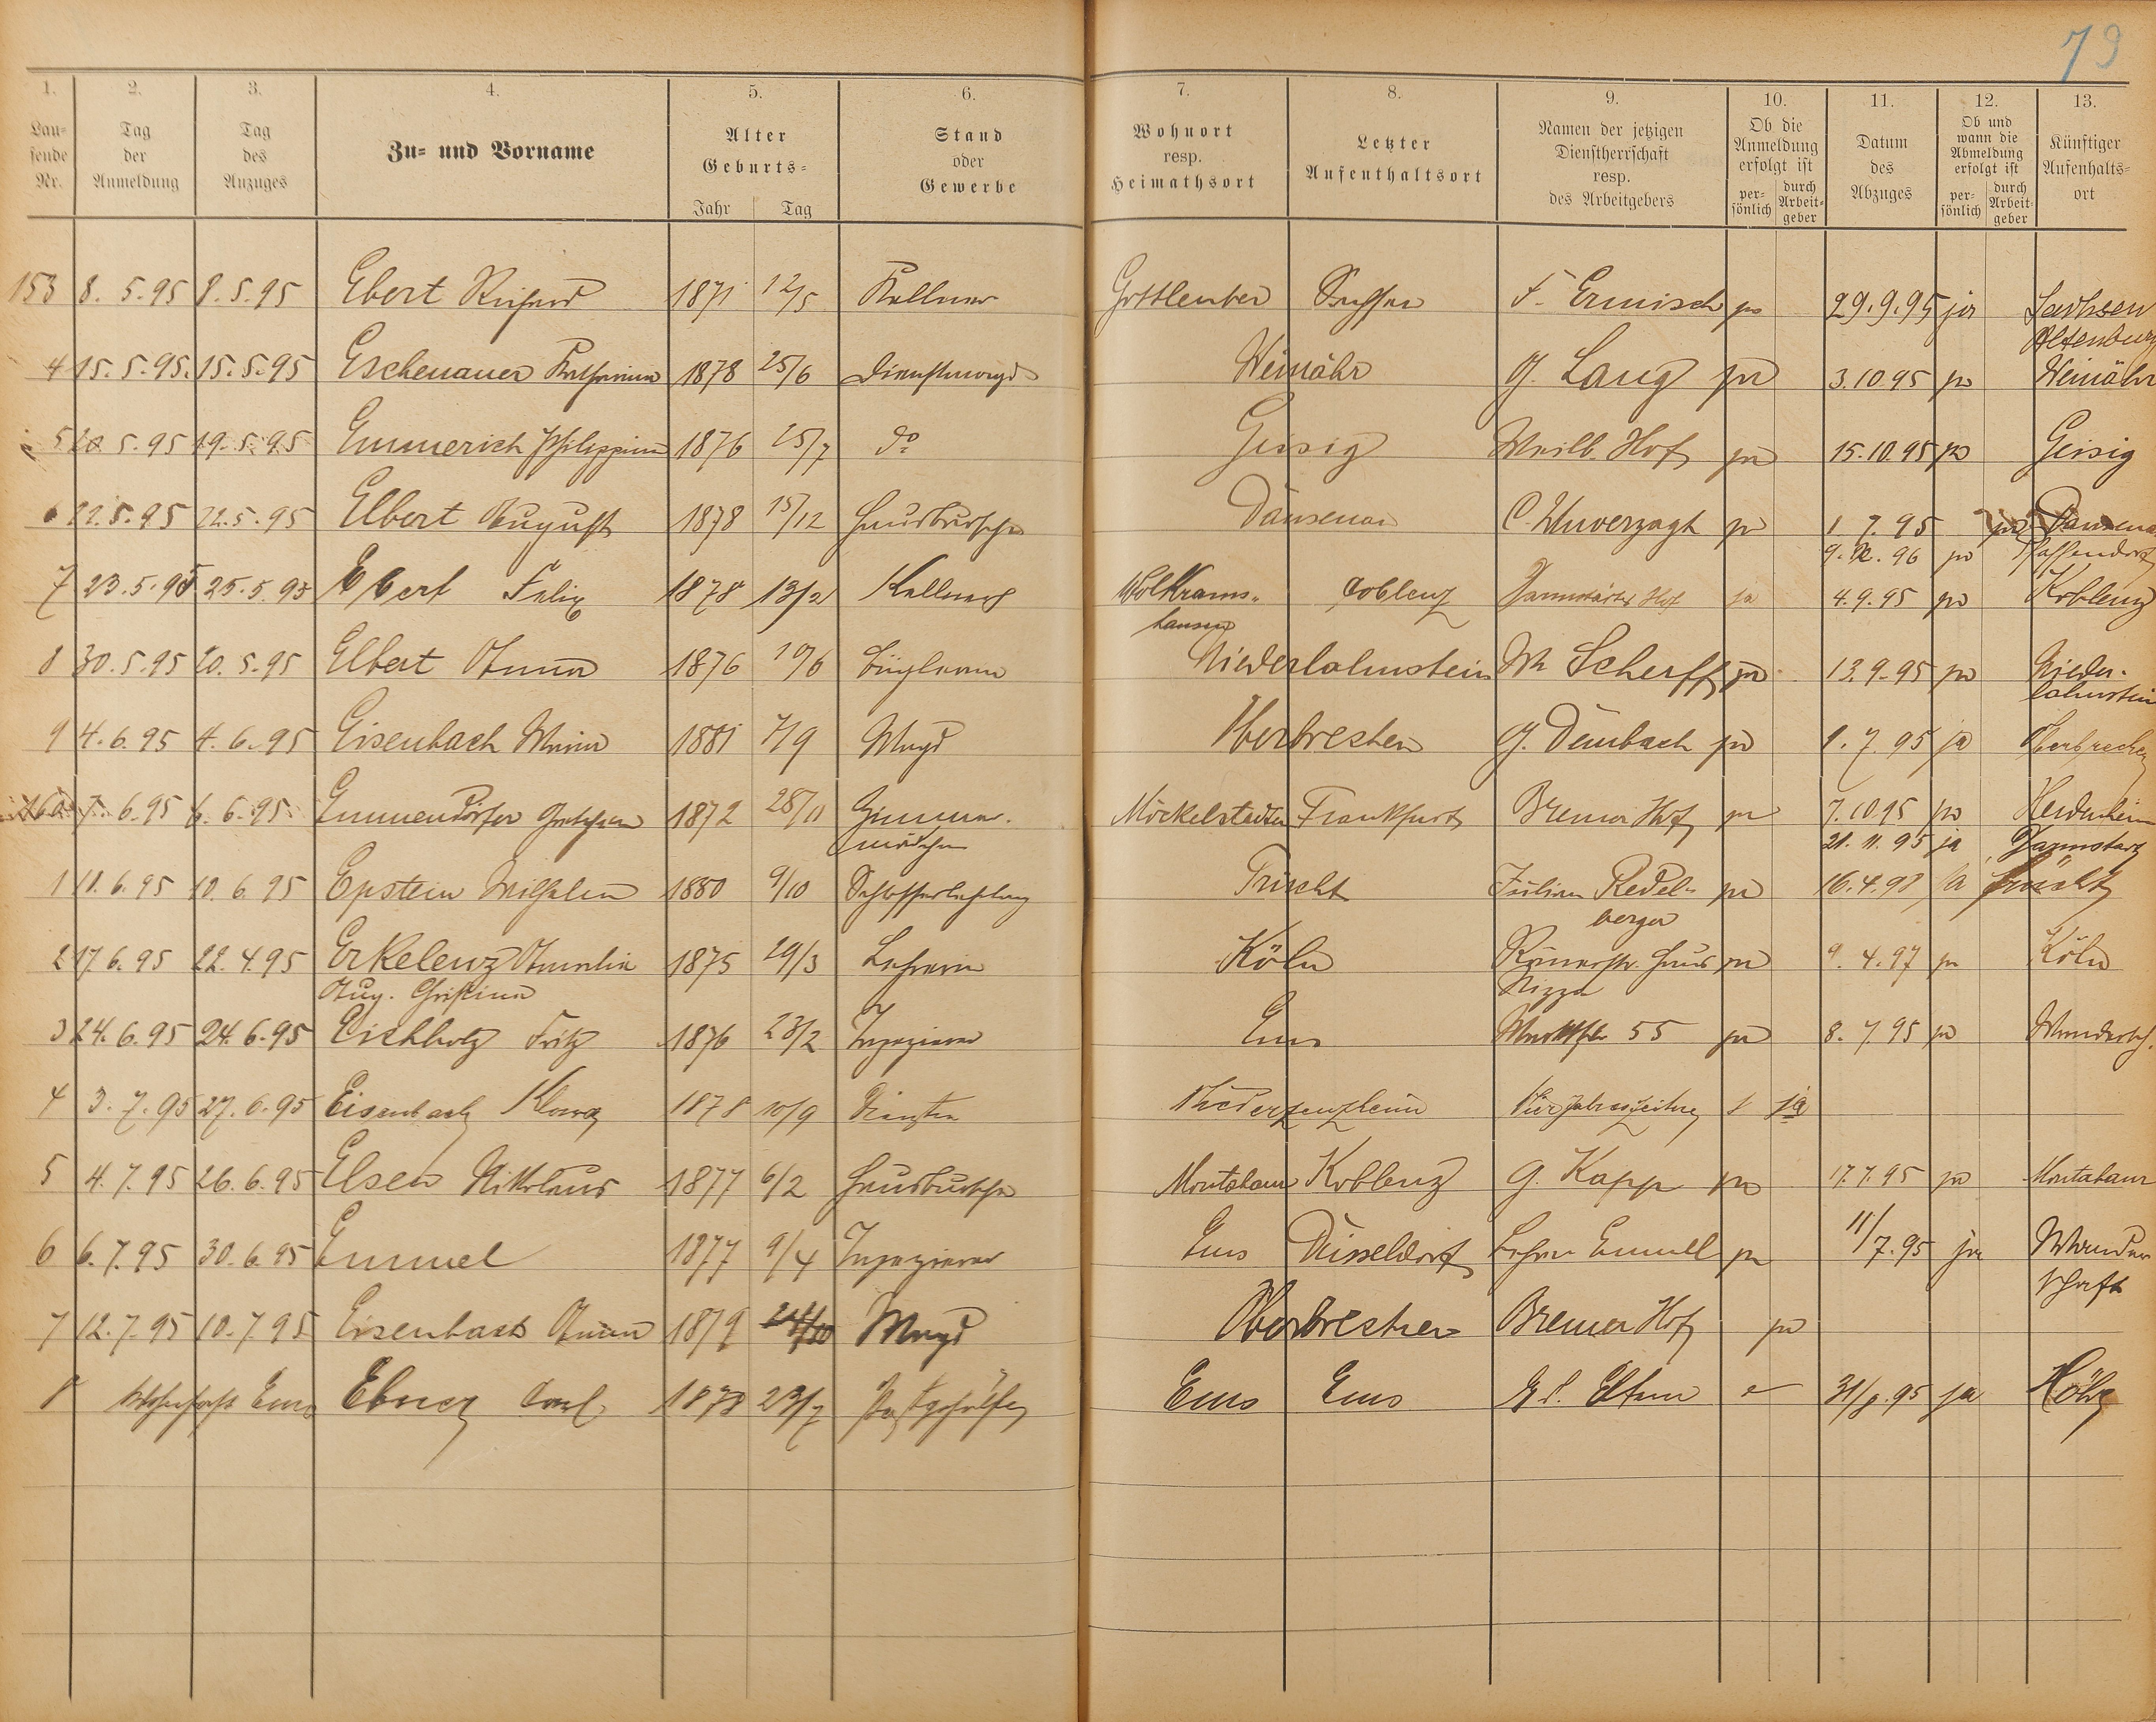 79
1. 2. 3. 4. 5. 6. 7. 8. 9. 10. 11. 12. 13.
Lau-
fende
Nr.
Tag
der
Anmeldung
Tag
des
Anzuges
Zu- und Vorname
Alter
Geburts-
Jahr Tag
Stand
oder
Gewerbe
Wohnort
resp.
Heimathsort
Letzter
Aufenthaltsort
Namen der jetzigen
Dienstherrschaft
resp.
des Arbeitgebers
Ob die
Anmeldung
erfolgt ist
per-
sönlich
durch
Arbeit-
geber
Datum
des
Abzuges
Ob und
wann die
Abmeldung
erfolgt ist
per-
sönlich
durch
Arbeit-
geber
Künftiger
Aufenthalts-
ort
153 8. 5. 95 8. 5. 95 Ebert Richard 1871 12/5 Kellner F. Ermisch ja 29. 9. 95 ja Sachsen
Altenburg
4 15. 5. 95. 15. 5. 95 Eschenauer Katharina 1878 25/6 Dienstmagd Weinähr G. Lang ja 3. 10. 95 ja Weinähr
5 20. 5. 95 19. 5. 95 Emmerich Philippine 1876 25/7 do Geisig Weilb. Hof ja 15. 10. 95 ja Geisig
6 22. 5. 95 22. 5. 95 Elbert August 1878 15/12 Hausbursche Dausenau C. Unverzagt ja 1. 7. 95 ja Dausenau
9. 96 ja Pfaffendorf
7 23. 5. 95 25. 5. 95 Ebert Felix 1878 13/2 Kellner Wolkrams-
hausen
Coblenz Darmstädter Hof ja 4. 9. 95 ja Koblenz
8 30. 5. 95 20. 5. 95 Elbert Anna 1876 Büglerin Niederlahnstein W Scherff ja 13. 9. 95 ja Nieder-
lahnstein
9 4. 6. 95 4. 6. 95 Eisenbach Maria 1881 7/9 Magd Oberbrechen G. Dembach ja 1. 7. 95 ja Oberbrechen
160 7. 6. 95 6. 6. 95 Emmendörfer Gretchen 1872 28/11 Zimmer-
mädchen
Möckelstedten Frankfurt Bremer Hof ja 7. 10. 95 ja Heidenheim
21. 11. 95 ja Darmstadt
1 11. 6. 95 10. 6. 95 Epstein Wilhelm 1880 9/10 Schlosserlehrling Frücht Julius Redel-
berger
ja 16. 4. 98 ja Frücht
2 17. 6. 95 22. 4. 95 Erkelenz Amalia
Aug. Christina
1875 29/3 Lehrerin Köln Römerstr. Haus
Nizza
ja 9. 4. 97 ja Köln
3 24. 6. 95 24. 6. 95 Eichholz Fritz 1876 23/2 Tapezierer Ems Marktstr 55 ja 8. 7. 95 ja Wandersch.
4 3. 7. 95 27. 6. 95 Eisenbach Klara 1878 10/9 Niederzeuzheim Vier Jahreszeiten ja
5 4. 7. 95 26. 6. 95 Elsen Nikolaus 1877 6/2 Hausbursche Montabaur Koblenz G. Kapp ja 17. 7. 95 ja Montabaur
6 6. 7. 95 30. 6. 95 Emmel 1877 9/4 Tapezierer Ems Düsseldorf Lehrer Emmel ja 11/7. 95 ja Wander
schaft
7 12. 7. 95 10. 7. 95 Eisenbach Anna 1879 Magd Oberbrechen Bremer Hof ja
8 Wohnhaft Ems Ebner Carl 1878 23/7 Postgehülfe Ems Ems Eltern 31/8. 95 ja Höhr